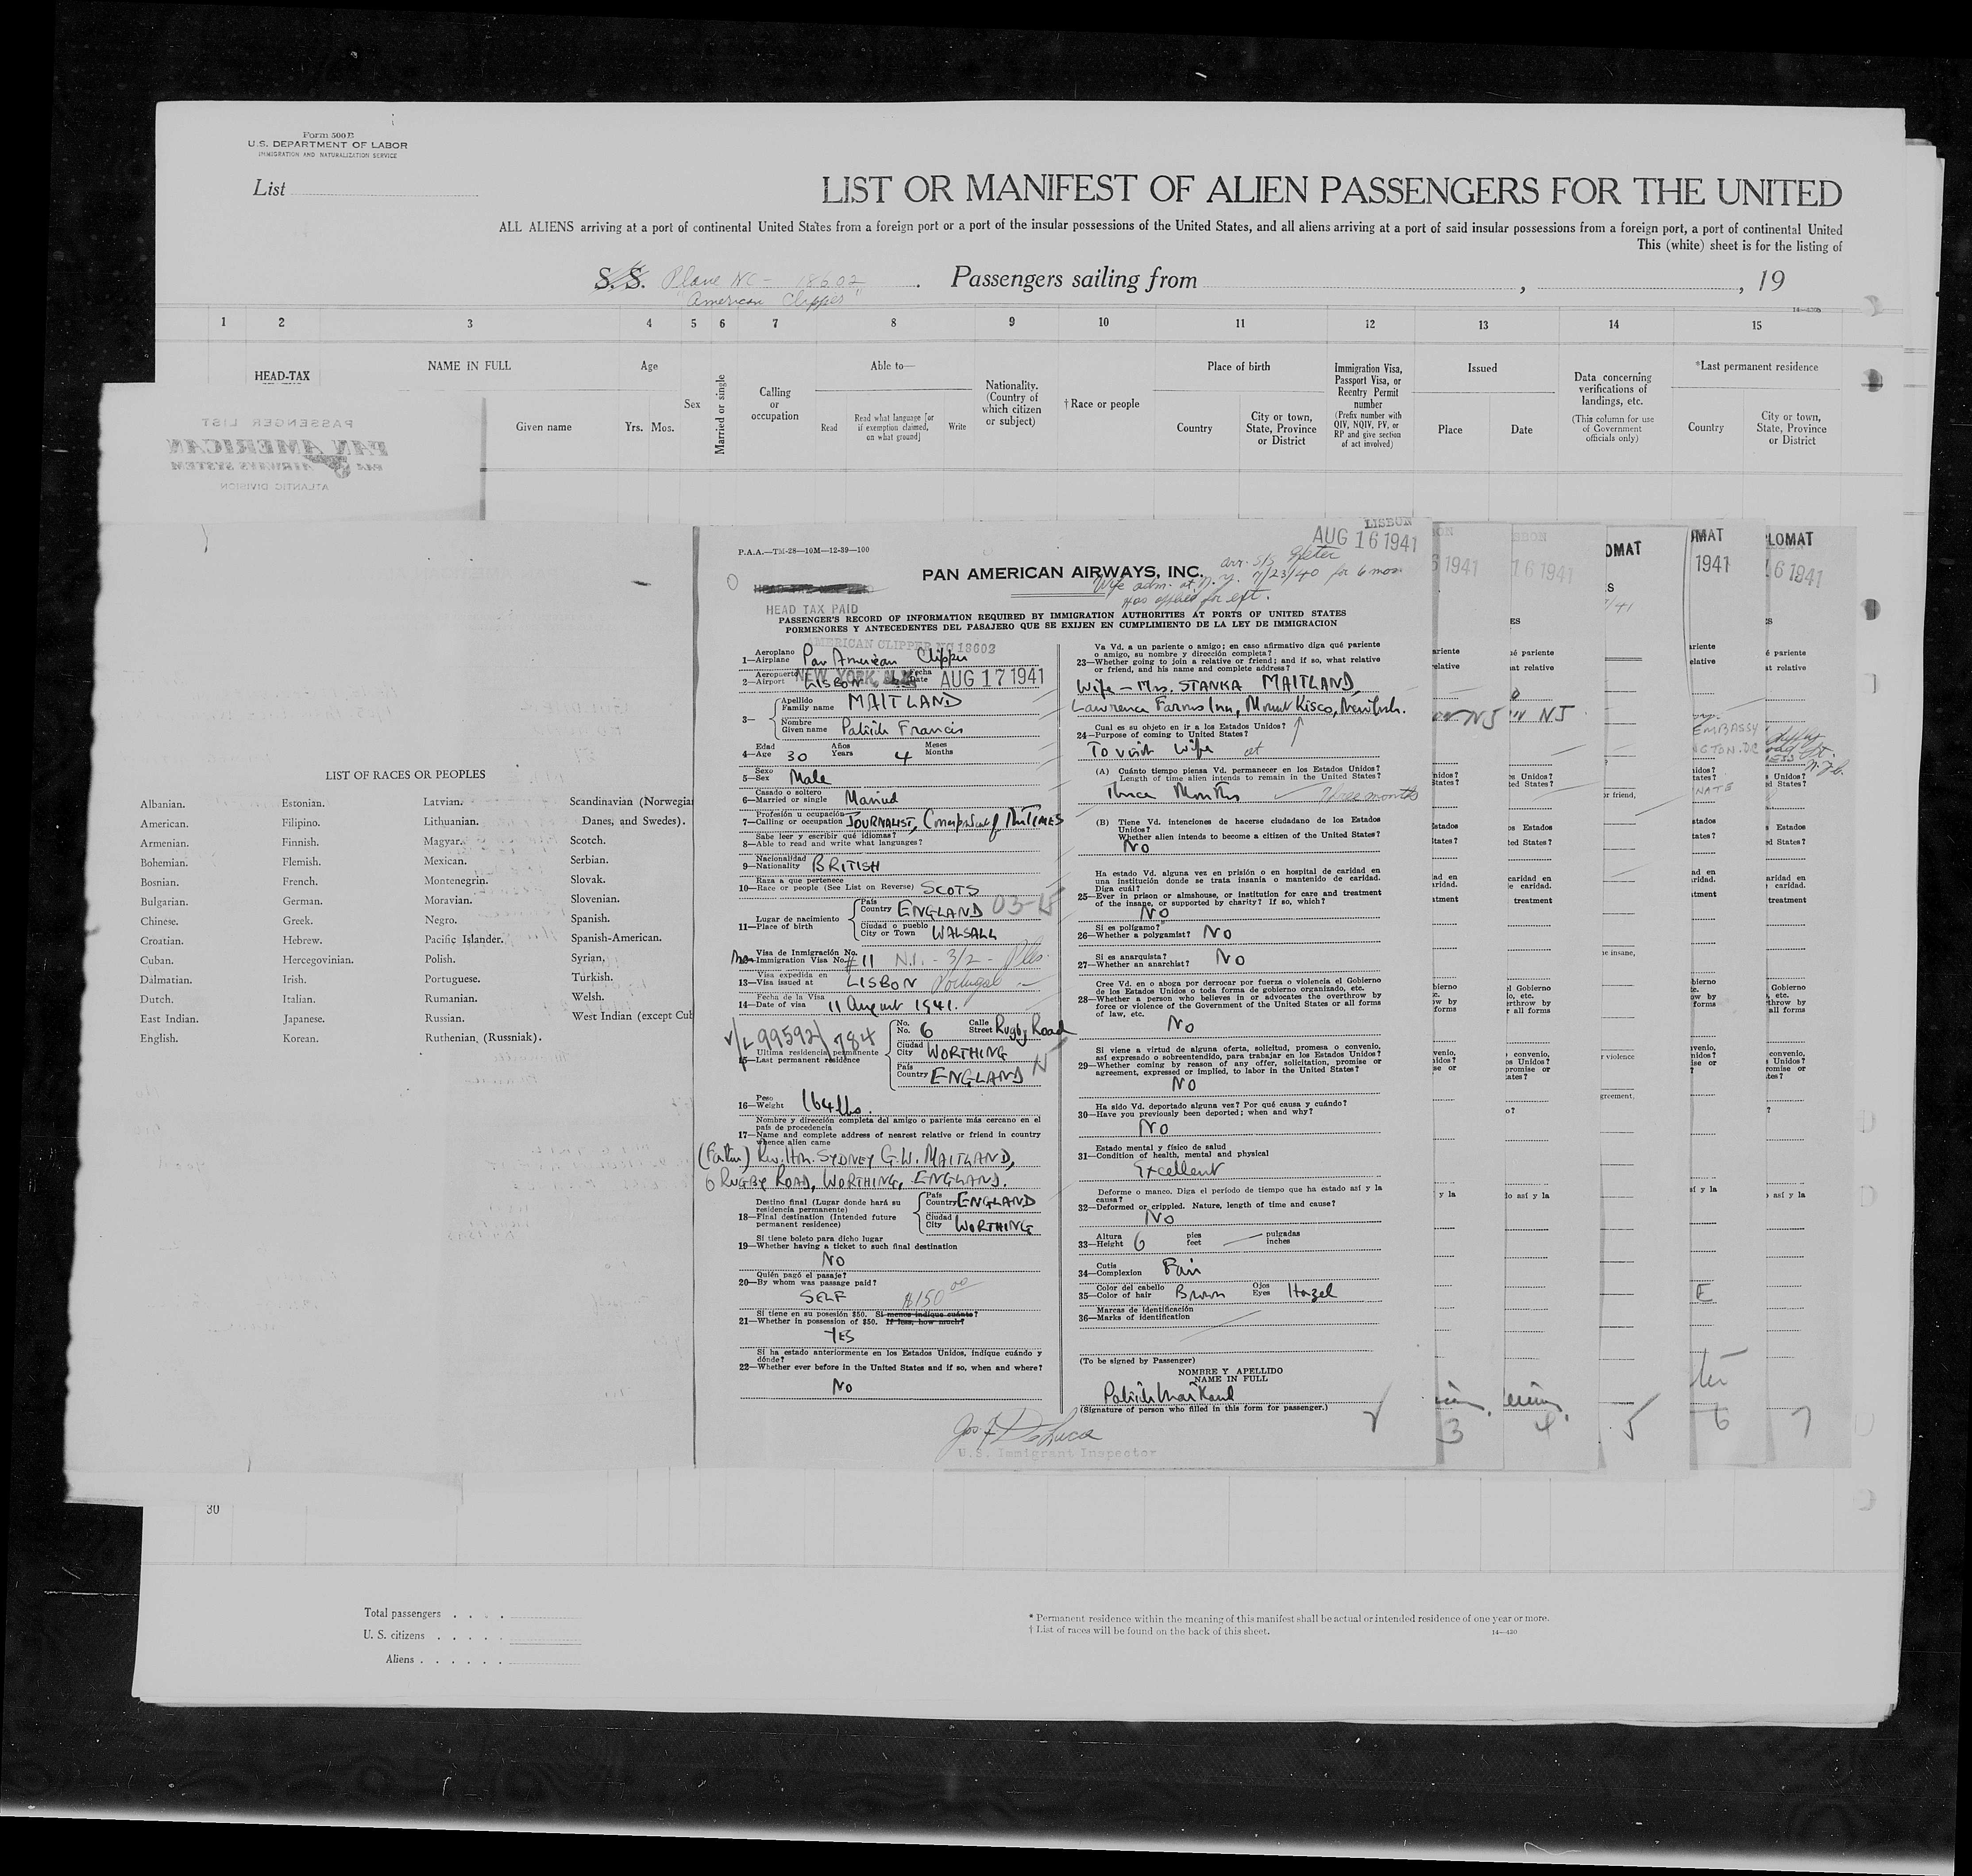 Form 500B
U.S. DEPARTMENT OF LABOR
IMMIGRATION AND NATURALIZATION SERVICE
List
LIST OR MANIFEST OF ALIEN PASSENGERS FOR THE UNITED
ALL ALIENS arriving at a port of continental United States from a foreign port or a port of the insular possessions of the United States, and all aliens arriving at a port of said insular possessions from a foreign port, a port of continental United
This (white) sheet is for the listing of
S.S. Plane NC - 18602 . Passengers sailing from , , 19
"American Clipper"
1 2 3 4 5 6 7 8 9 10 11 12 13 14 15
HEAD-TAX
NAME IN FULL
Given name
Age
Yrs. Mos.
Sex
Married or single
Calling or occupation
Able to—
Read
Read what language [or if exemption claimed, on what ground]
Write
Nationality. (Country of which citizen or subject)
†Race or people
Place of birth
Country
City or town, State, Province or District
Immigration Visa, Passport Visa, or Reentry Permit number
(Prefix number with QIV, NQIV, PV, or RP and give section of act involved)
Issued
Place
Date
Data concerning verifications of landings, etc.
(This column for use of Government officials only)
*Last permanent residence
Country
City or town, State, Province or District
PASSENGER LIST
PAN AMERICAN
PAN AIRWAYS SYSTEM
ATLANTIC DIVISION
LIST OF RACES OR PEOPLES
Albanian. Estonian. Latvian. Scandinavian (Norwegia
American. Filipino. Lithuanian. Danes, and Swedes).
Armenian. Finnish. Magyar. Scotch.
Bohemian. Flemish. Mexican. Serbian.
Bosnian. French. Montenegrin. Slovak.
Bulgarian. German. Moravian. Slovenian.
Chinese. Greek. Negro. Spanish.
Croatian. Hebrew. Pacific Islander. Spanish-American.
Cuban. Hercegovinian. Polish. Syrian.
Dalmatian. Irish. Portuguese. Turkish.
Dutch. Italian. Rumanian. Welsh.
East Indian. Japanese. Russian. West Indian (except Cub
English. Korean. Ruthenian, (Russniak).
P.A.A.—TM-28—10M—12-39—100
LISBON
AUG 16 1941
PAN AMERICAN AIRWAYS, INC.
arr. S/S
Wife adm. at N.Y. 7/23/40 for 6 mos.
Has applied for ext.
HEAD TAX PAID
PASSENGER'S RECORD OF INFORMATION REQUIRED BY IMMIGRATION AUTHORITIES AT PORTS OF UNITED STATES
PORMENORES Y ANTECEDENTES DEL PASAJERO QUE SE EXIJEN EN CUMPLIMIENTO DE LA LEY DE IMMIGRACION
AMERICAN CLIPPER NC 18602
Aeroplano
1—Airplane Pan American Clipper
Aeropuerto Fecha
2—Airport LISBON NEW YORK, N.Y. Date AUG 17 1941
3—
Apellido
Family name MAITLAND
Nombre
Given name Patrick Francis
Edad Años Meses
4—Age 30 Years 4 Months
Sexo
5—Sex Male
Casado o soltero
6—Married or single Married
Profesión u ocupación
7—Calling or occupation JOURNALIST, Correspondent of The TIMES
Sabe leer y escribir qué idiomas?
8—Able to read and write what languages?
Nacionalidad
9—Nationality BRITISH
Raza a que pertenece
10—Race or people (See List on Reverse) SCOTS
País
Country ENGLAND
Lugar de nacimiento
11—Place of birth
Ciudad o pueblo
City or Town WALSALL
Visa de Inmigración No.
Non Immigration Visa No. # 11 N.I. - 3/2 -
Visa expedida en
13—Visa issued at LISBON Portugal
Fecha de la Visa
14—Date of visa 11 August 1941.
V/L 99592/784
No. Calle
No. 6 Street Rugby Road
Ultima residencia permanente
15—Last permanent residence
Ciudad
City WORTHING
País
Country ENGLAND
Peso
16—Weight 164 lbs.
Nombre y dirección completa del amigo o pariente más cercano en el
país de procedencia
17—Name and complete address of nearest relative or friend in country
whence alien came
(Father) Rev. Hon. SYDNEY G.W. MAITLAND,
6 RUGBY ROAD, WORTHING, ENGLAND.
Destino final (Lugar donde hará su
residencia permanente)
18—Final destination (Intended future
permanent residence)
País
Country ENGLAND
Ciudad
City WORTHING
Si tiene boleto para dicho lugar
19—Whether having a ticket to such final destination
NO
Quién pagó el pasaje?
20—By whom was passage paid?
SELF $150 00
Si tiene en su posesión $50. Si menos indique cuánto?
21—Whether in possession of $50. If less, how much?
YES
Si ha estado anteriormente en los Estados Unidos, indique cuándo y
dónde?
22—Whether ever before in the United States and if so, when and where?
No
Va Vd. a un pariente o amigo; en caso afirmativo diga qué pariente
o amigo, su nombre y dirección completa?
23—Whether going to join a relative or friend; and if so, what relative
or friend, and his name and complete address?
Wife — Mrs. STANKA MAITLAND,
Lawrence Farms Inn, Mount Kisco, New York.
Cual es su objeto en ir a los Estados Unidos?
24—Purpose of coming to United States?
To visit wife at
(A) Cuánto tiempo piensa Vd. permanecer en los Estados Unidos?
Length of time alien intends to remain in the United States?
Three Months Three months
(B) Tiene Vd. intenciones de hacerse ciudadano de los Estados
Unidos?
Whether alien intends to become a citizen of the United States?
No
Ha estado Vd. alguna vez en prisión o en hospital de caridad en
una institución donde se trata insania o mantenido de caridad.
Diga cuál?
25—Ever in prison or almshouse, or institution for care and treatment
of the insane, or supported by charity? If so, which?
NO
Si es polígamo?
26—Whether a polygamist? No
Si es anarquista?
27—Whether an anarchist? No
Cree Vd. en o aboga por derrocar por fuerza o violencia el Gobierno
de los Estados Unidos o toda forma de gobierno organizado, etc.
28—Whether a person who believes in or advocates the overthrow by
force or violence of the Government of the United States or all forms
of law, etc.
No
Si viene a virtud de alguna oferta, solicitud, promesa o convenio,
así expresado o sobreentendido, para trabajar en los Estados Unidos?
29—Whether coming by reason of any offer, solicitation, promise or
agreement, expressed or implied, to labor in the United States?
NO
Ha sido Vd. deportado alguna vez? Por qué causa y cuándo?
30—Have you previously been deported; when and why?
No
Estado mental y físico de salud
31—Condition of health, mental and physical
Excellent
Deforme o manco. Diga el período de tiempo que ha estado así y la
causa?
32—Deformed or crippled. Nature, length of time and cause?
No
Altura pies pulgadas
33—Height 6 feet — inches
Cutis
34—Complexion Fair
Color del cabello Ojos
35—Color of hair Brown Eyes Hazel
Marcas de identificación
36—Marks of identification
(To be signed by Passenger)
NOMBRE Y APELLIDO
NAME IN FULL
Patrick Maitland
(Signature of person who filled in this form for passenger.)
Jos. F. DeLuca
U.S. Immigrant Inspector
3 4 5 6 7
30
Total passengers . . . .
U. S. citizens . . . . .
Aliens . . . . . .
* Permanent residence within the meaning of this manifest shall be actual or intended residence of one year or more.
† List of races will be found on the back of this sheet.
14—430